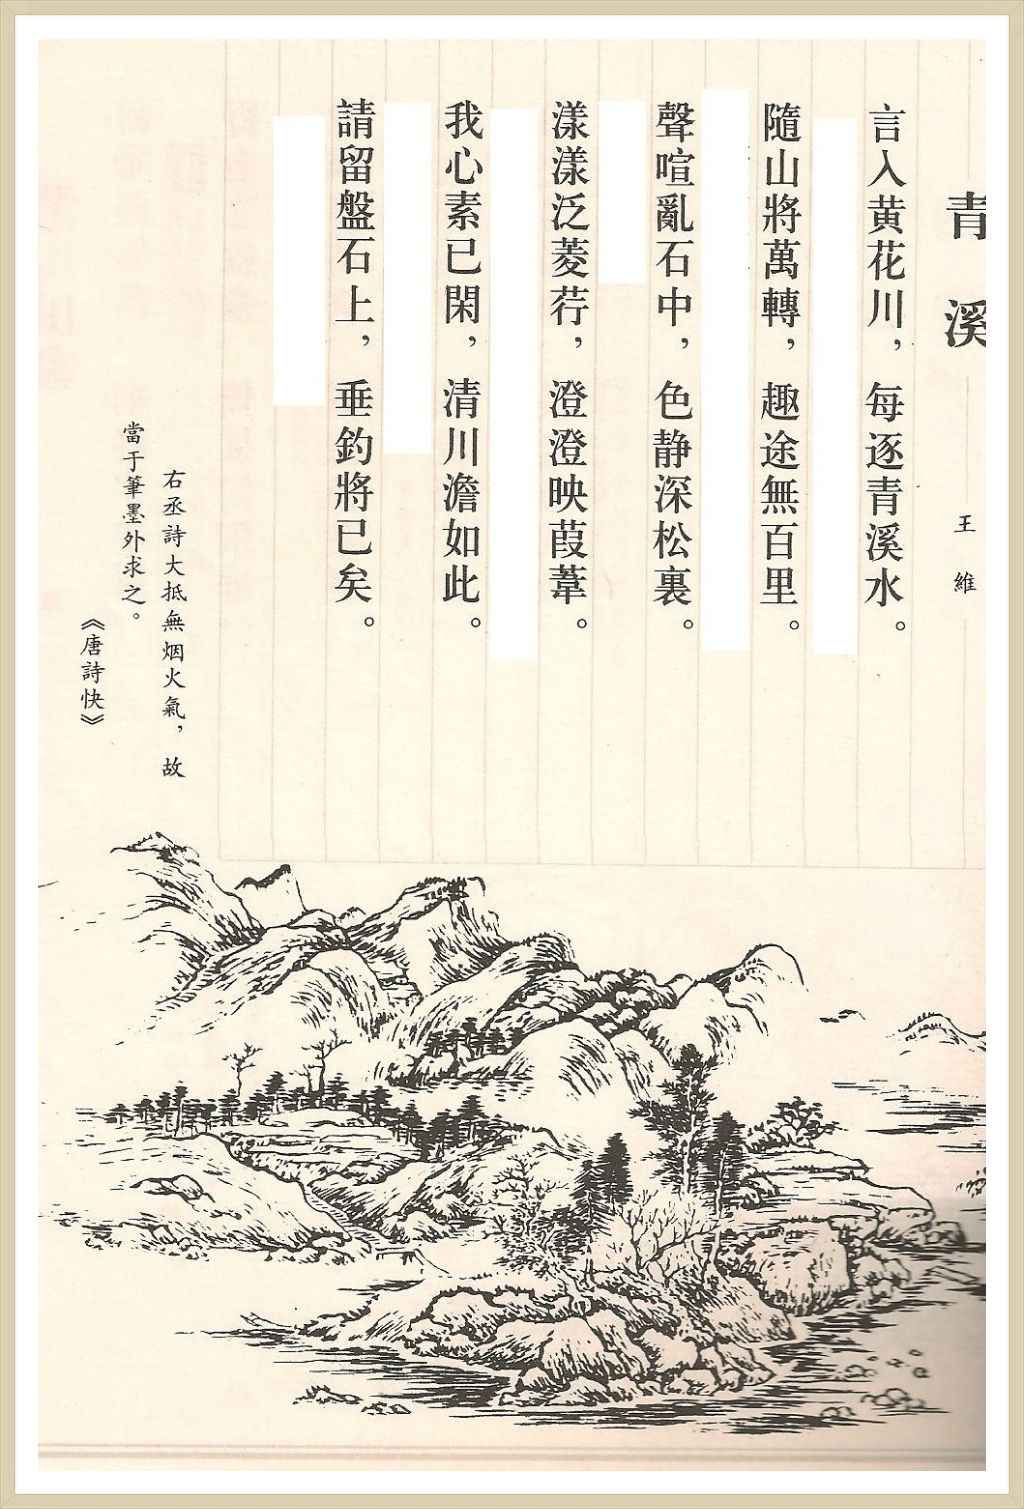 青溪
王維
言入黄花川，每逐青溪水。
隨山將萬轉，趣途無百里。
聲喧亂石中，色静深松裏。
漾漾泛菱荇，澄澄映葭葦。
我心素已閑，清川澹如此。
請留盤石上，垂釣將已矣。
右丞詩大抵無烟火氣，故
當于筆墨外求之。
《唐詩快》